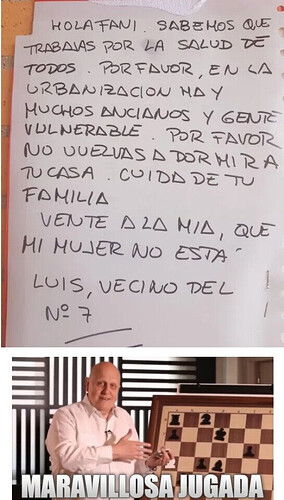 HOLA FANI. SABEMOS QUE
TRABAJAS POR LA SALUD DE
TODOS. POR FAVOR, EN LA
URBANIZACION HAY
MUCHOS ANCIANOS Y GENTE
VULNERABLE. POR FAVOR
NO VUELVAS A DORMIR A
TU CASA. CUIDA DE TU
FAMILIA
VENTE A LA MIA, QUE
MI MUJER NO ESTA
LUIS, VECINO DEL
Nº 7
MARAVILLOSA JUGADA